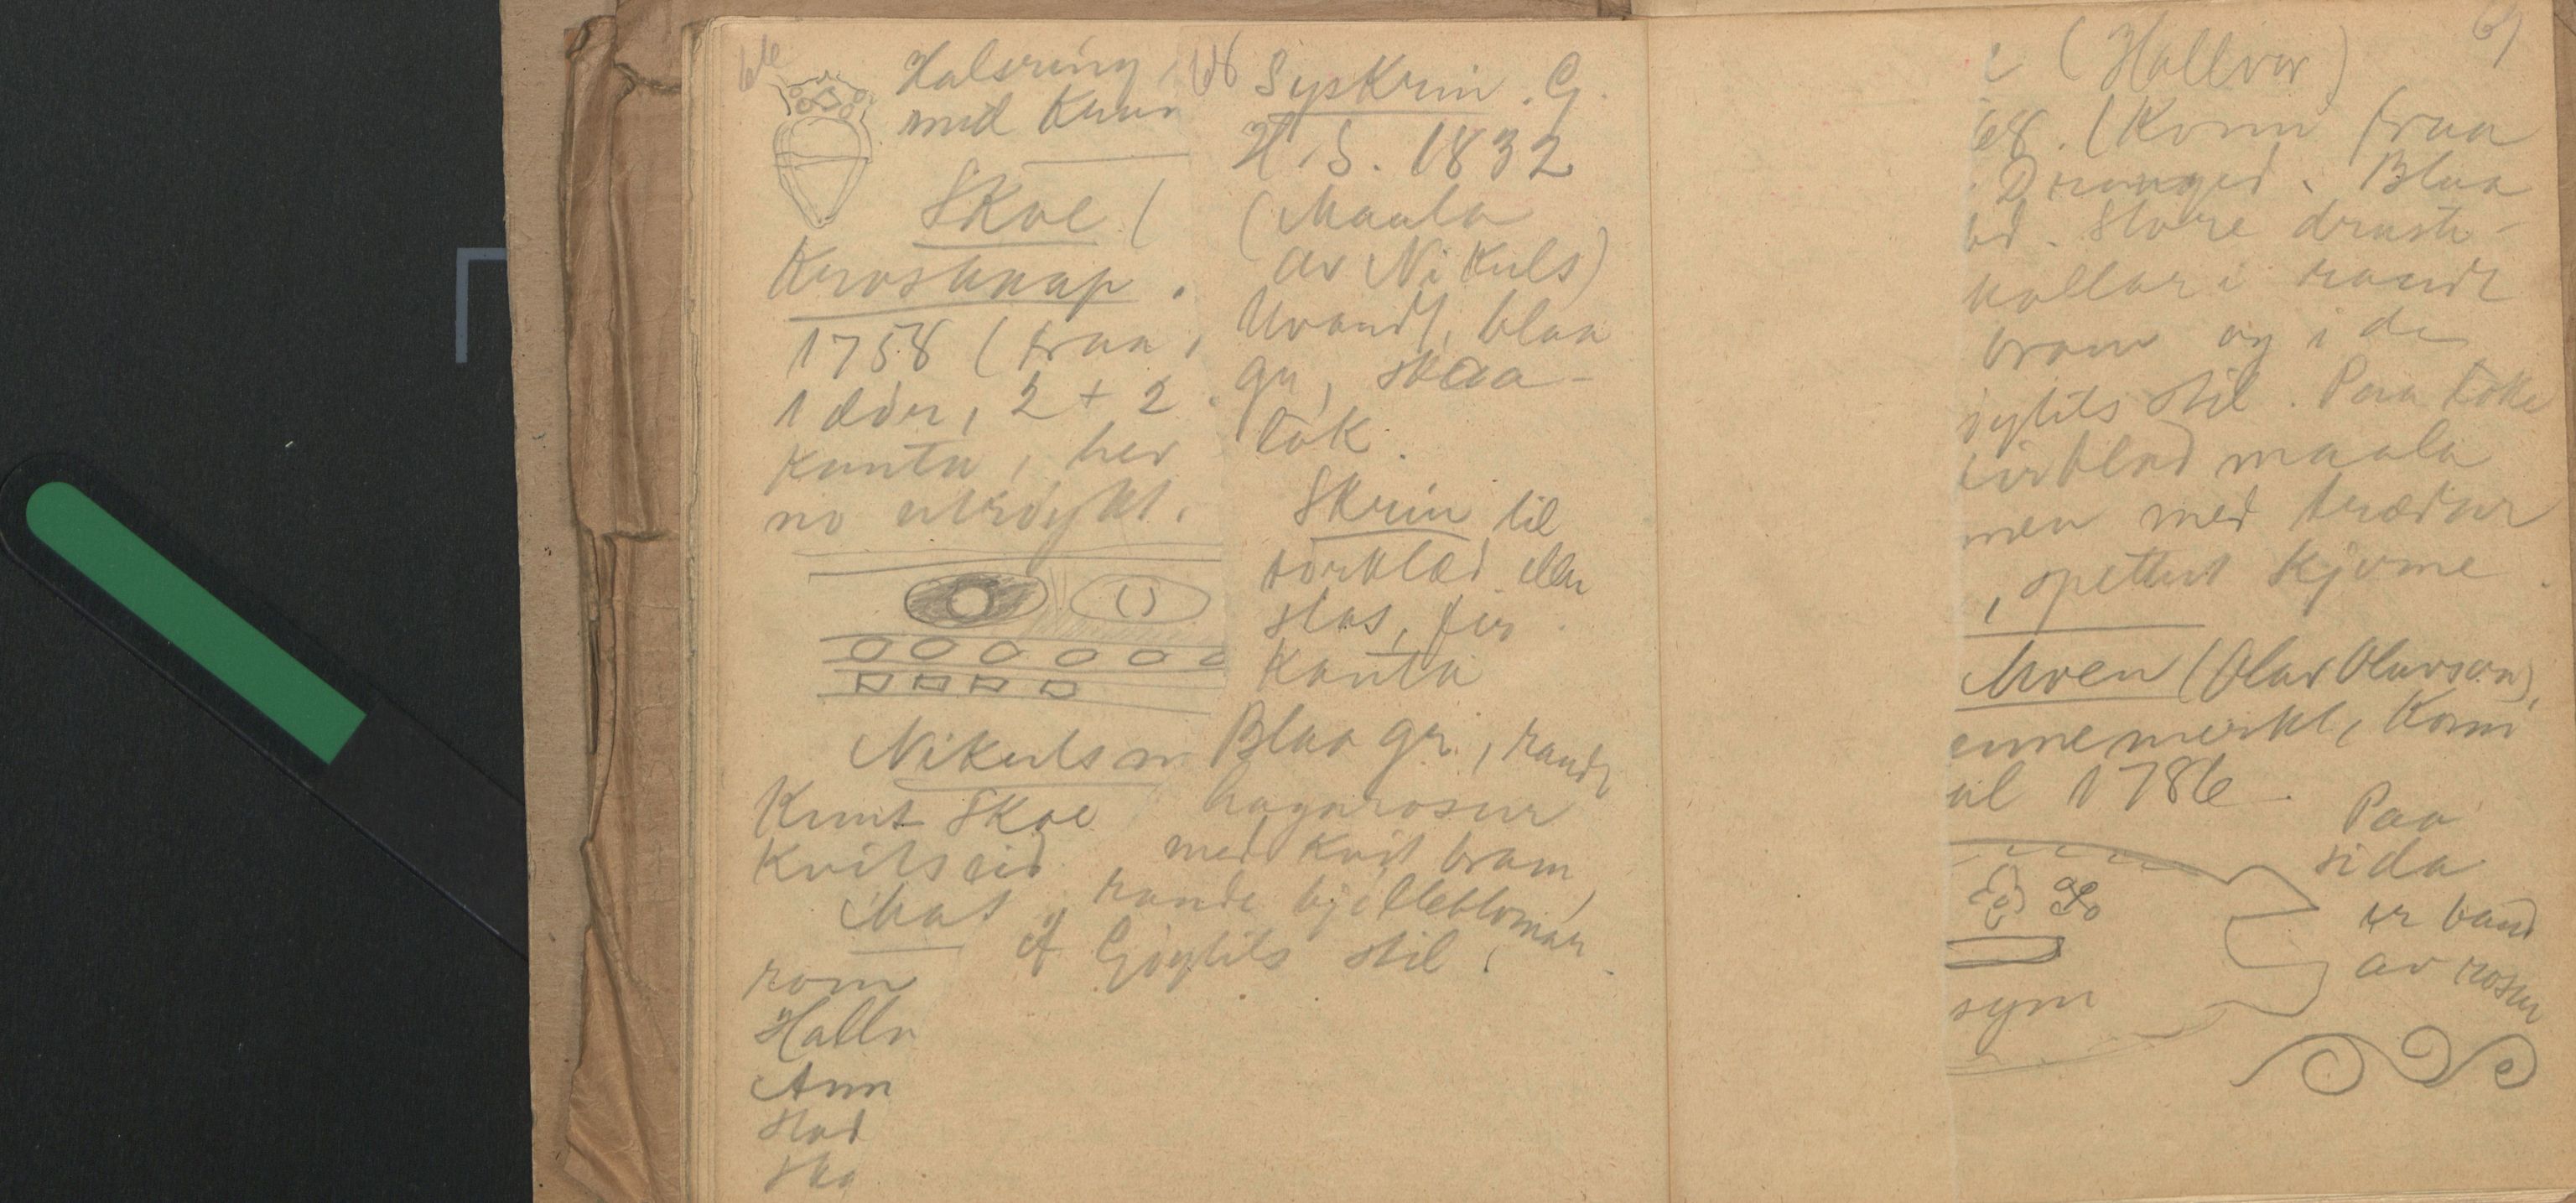 66
Halsring
med Krun
Skoe (
Krosskaap.
1758 (fraa
1 dör, 2 + 2
kanta, her
no utköykt.
Nikuls
Knut Skoe
Kvitseid
Mat
rom
Hallv
Ann
Stad
Sko
68 Syskrin. G.
H. S. 1832
(Maala
av Nikuls)
blaa
gr, skaa-
lok.
Skrin til
törklæd eller
stas, fir
kanta
Blaa gr., raudt
hagarosur
med kvit bram,
raude bjölleblomar
i Göytils stil.
69
i (Hallvor)
68. (Kom fraa
Dranged. Blaa
bd. Store druste-
kollar i raudt
bram og i de
öytils stil. Paa loke
maala
men med trædur
, spettut kjorne
Moen (Olav Olavson),
enne merkt, Kom
al 1786
Paa
sida
er band
av rosur
sym